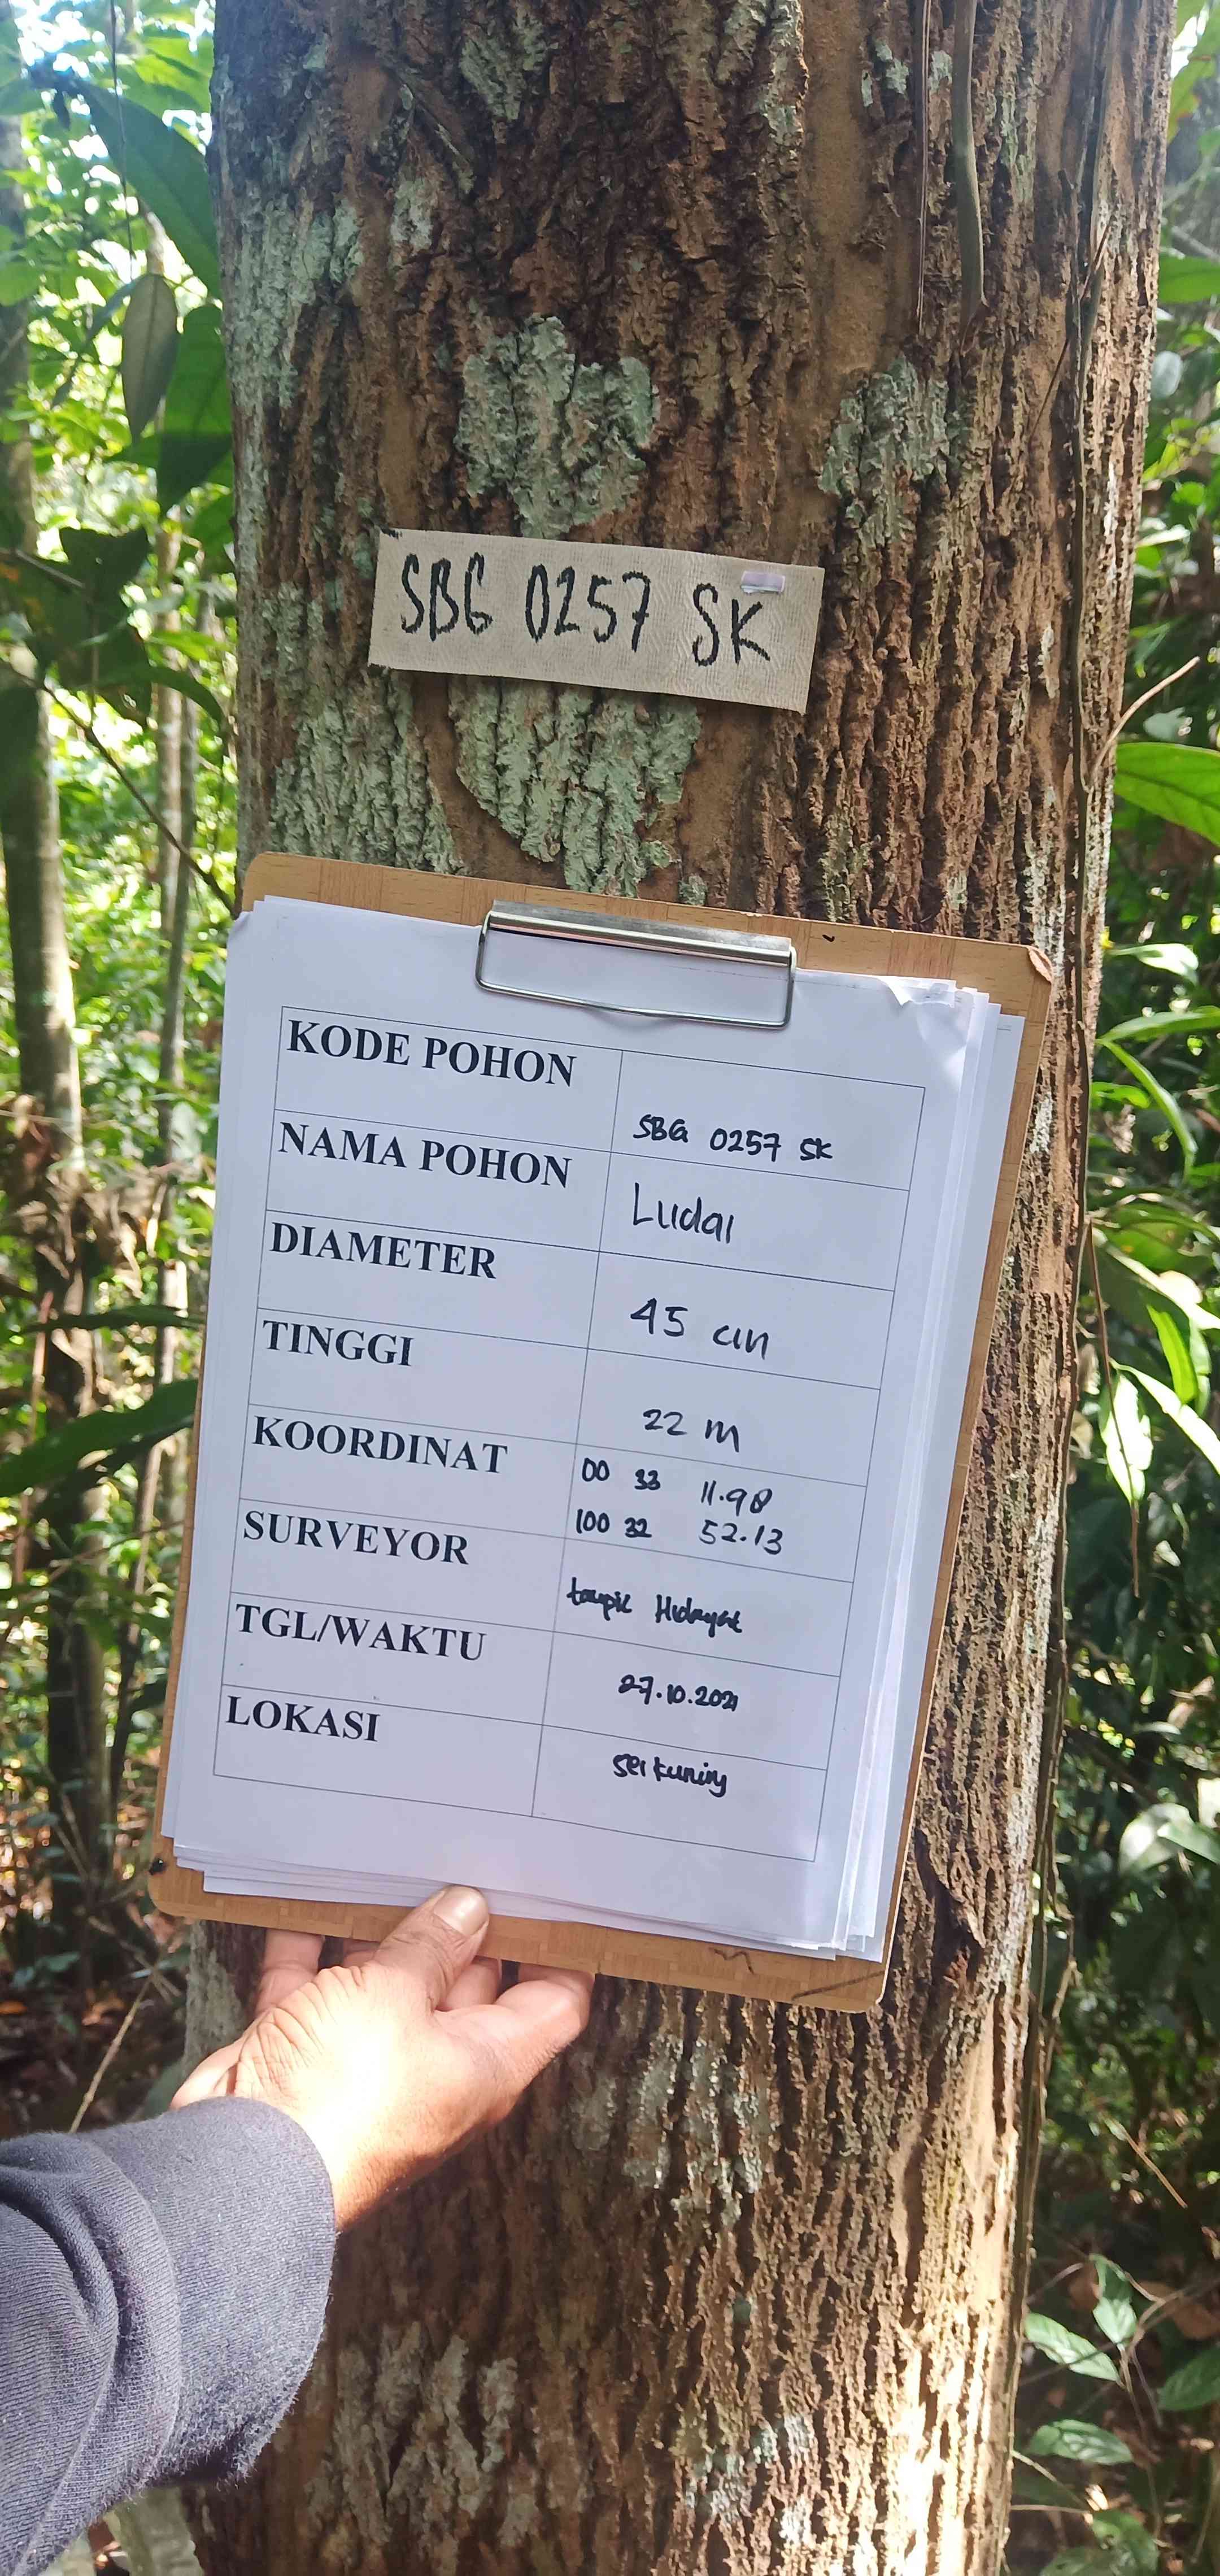 SBG 0257 SK
KODE POHON
SBG 0257 SK
NAMA POHON
Ludai
DIAMETER
45 cm
TINGGI
22 m
KOORDINAT
00 33 11.98
100 32 52.13
SURVEYOR
taupik Hidayat
TGL/WAKTU
27.10.2021
LOKASI
sei kuning